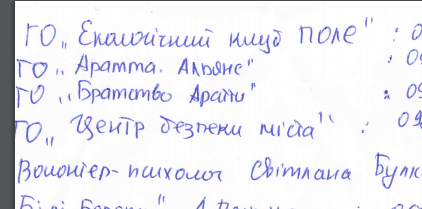 ГО „Екологічний клуб ПОЛЕ" : 0
ГО „Аратта. Альянс" : 09
ГО „Братство Арати" : 09
ГО „Центр безпеки міста" : 09
Волонтер-психолог Світлана Булк
Білі